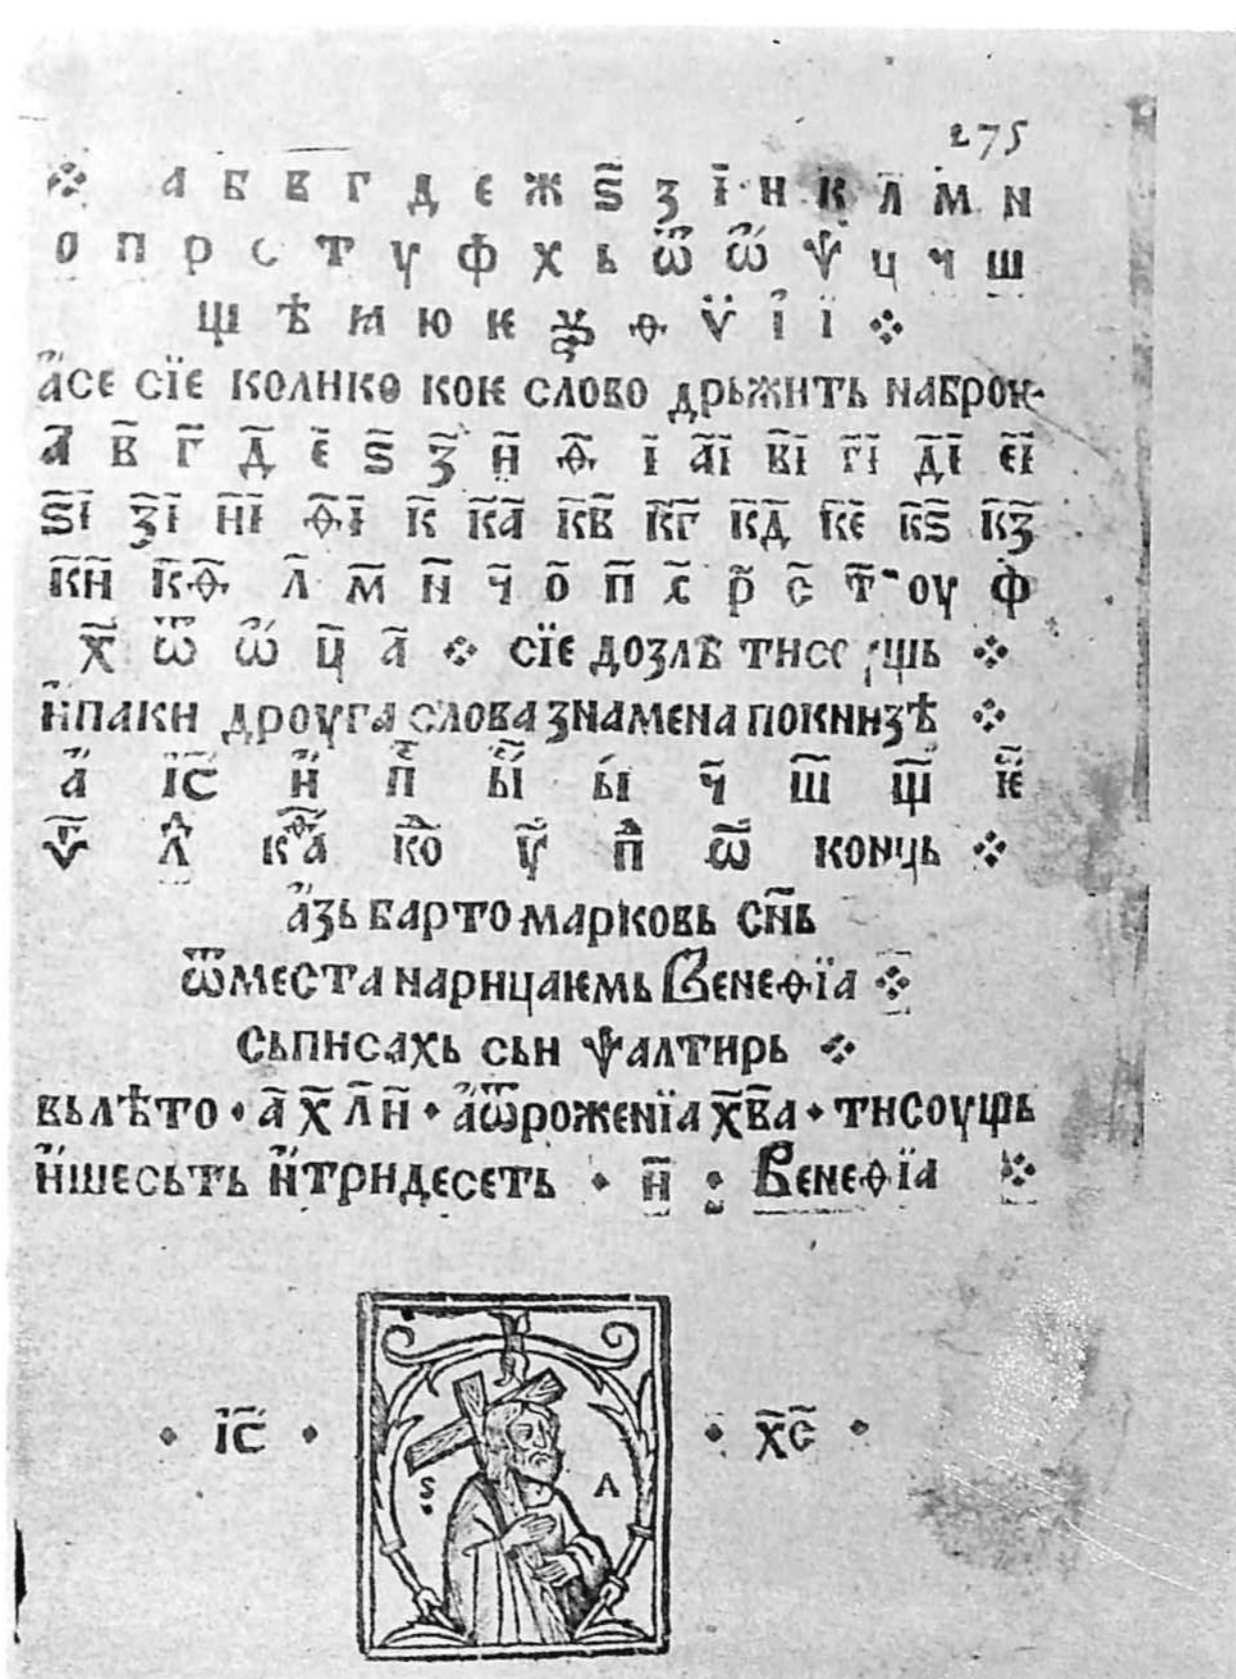 275
а б в г д є ж ѕ҃ з і҃ н к л м н
о п р с т ү ф х ь ѿ ѡ҃ ѱ ц ч ш
щ ѣ ꙗ ю ѥ ѯ ѳ ѵ і ї
а҆се сїе колико коѥ слово дрьжить наброꙗ·
а҃ в҃ г҃ д҃ е҃ ѕ҃ з҃ и҃ ѳ҃ і҃ а҃і в҃і г҃і д҃і е҃і
ѕ҃і з҃і и҃і ѳ҃і к҃ к҃а к҃в к҃г к҃д к҃е к҃ѕ к҃з
к҃и к҃ѳ л҃ м҃ н҃ ч҃ о҃ п҃ р҃ с҃ т҃ оу ф
х҃ ѿ ѡ҃ ц҃ а҃ сїе дозлѣ
и҆паки дроуга слова знамена покнизѣ
а҆ і҃с и҆ п ы ы ч҃ ш҃ щ҃ ѥ
ѵ л к а ко ү п ѡ҃ конць
а҆зь барто марковь с҃нь
ѿместа нарицаѥмь Венеѳїа
сьписахь сьи ѱалтирь
вьлѣто · а҃ х҃ л҃ и҃ · а҆ѿроженїа х҃ва · тисоущь
и҆шесьть и҆тридесеть · и҃ · Венеѳїа
· і҃с · · х҃с ·
S A